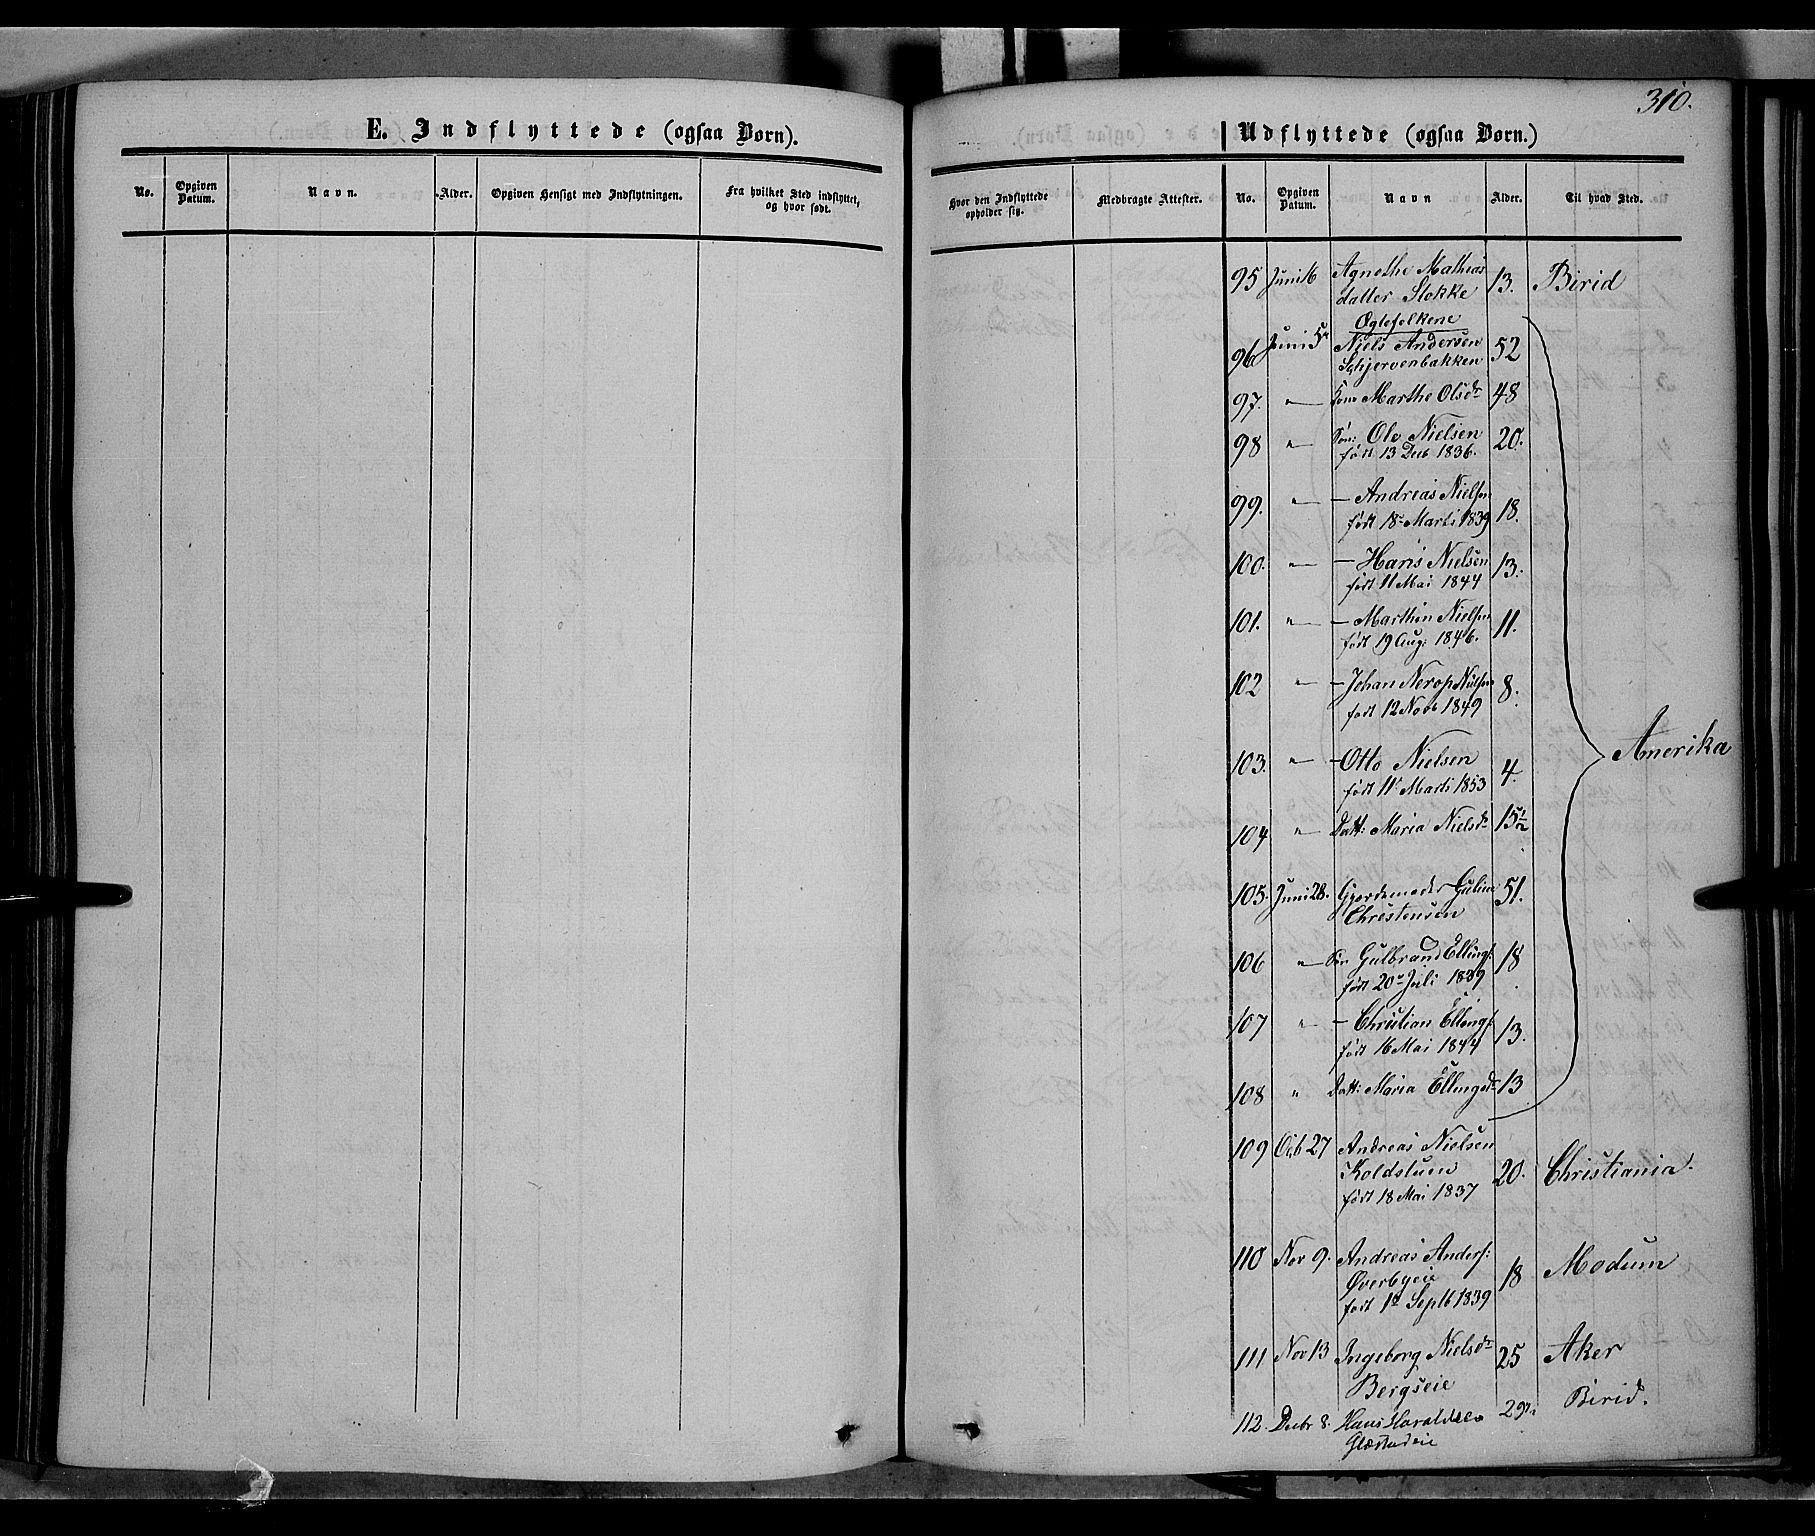 310.
E. Indflyttede (ogsaa Børn).
No. Opgiven Datum. Navn. Alder. Opgiven Hensigt med Indflytningen. Fra hvilket Sted indflyttet, og hvor født.
Udflyttede (ogsaa Børn.)
Hvor den Indflyttede opholder sig. Medbragte Attester. No. Opgiven Datum. Navn Alder. Til hvad Sted.
95 Juni 16 Agnethe Mathias
datter Stokke 13. Birid
Ægtefolkene
96 Juni 5te Niels Andersen 52
Schjervenbakken
97. " Kone Marthe Olsdr 48
98 " Søn: Ole Nielsen 20.
født 13 Deb 1836.
99. " — Andreas Nielsen
født 18 Marts 1839 18.
100. " — Hans Nielsen 13.
født 11 Mai 1844
101. " — Marthin Nielsen 11.
født 19 Aug: 1846.
102 " — Johan Nielsen 8.
født 12 Novb 1849
Amerika
103. " — Otto Nielsen 4.
født 11 Marts 1853
104 " Datt: Maria Nielsdr 15 1/2
105. Juni 28. Gjordemoder Guline 51.
Christensen
106 " Søn Gulbrand Ellings: 18
født 20de Juli 1839
107 " — Christian Ellings: 13.
født 16 Mai 1844
108 " Datt: Maria Ellingsdr 13
109 Octb 27 Andreas Nielsen
Koldstuen 20. Christiania.
født 18 Mai 1837
110 Nov 9. Andreas Anders:
Øverbyeie 18 Modum
født 1st Septb 1839
111 Nov 13 Ingeborg Nielsdr 25 Aker
Bergseie
112. Decbr 8. Hans Haraldsen 29 Birid.
Glæstadeie